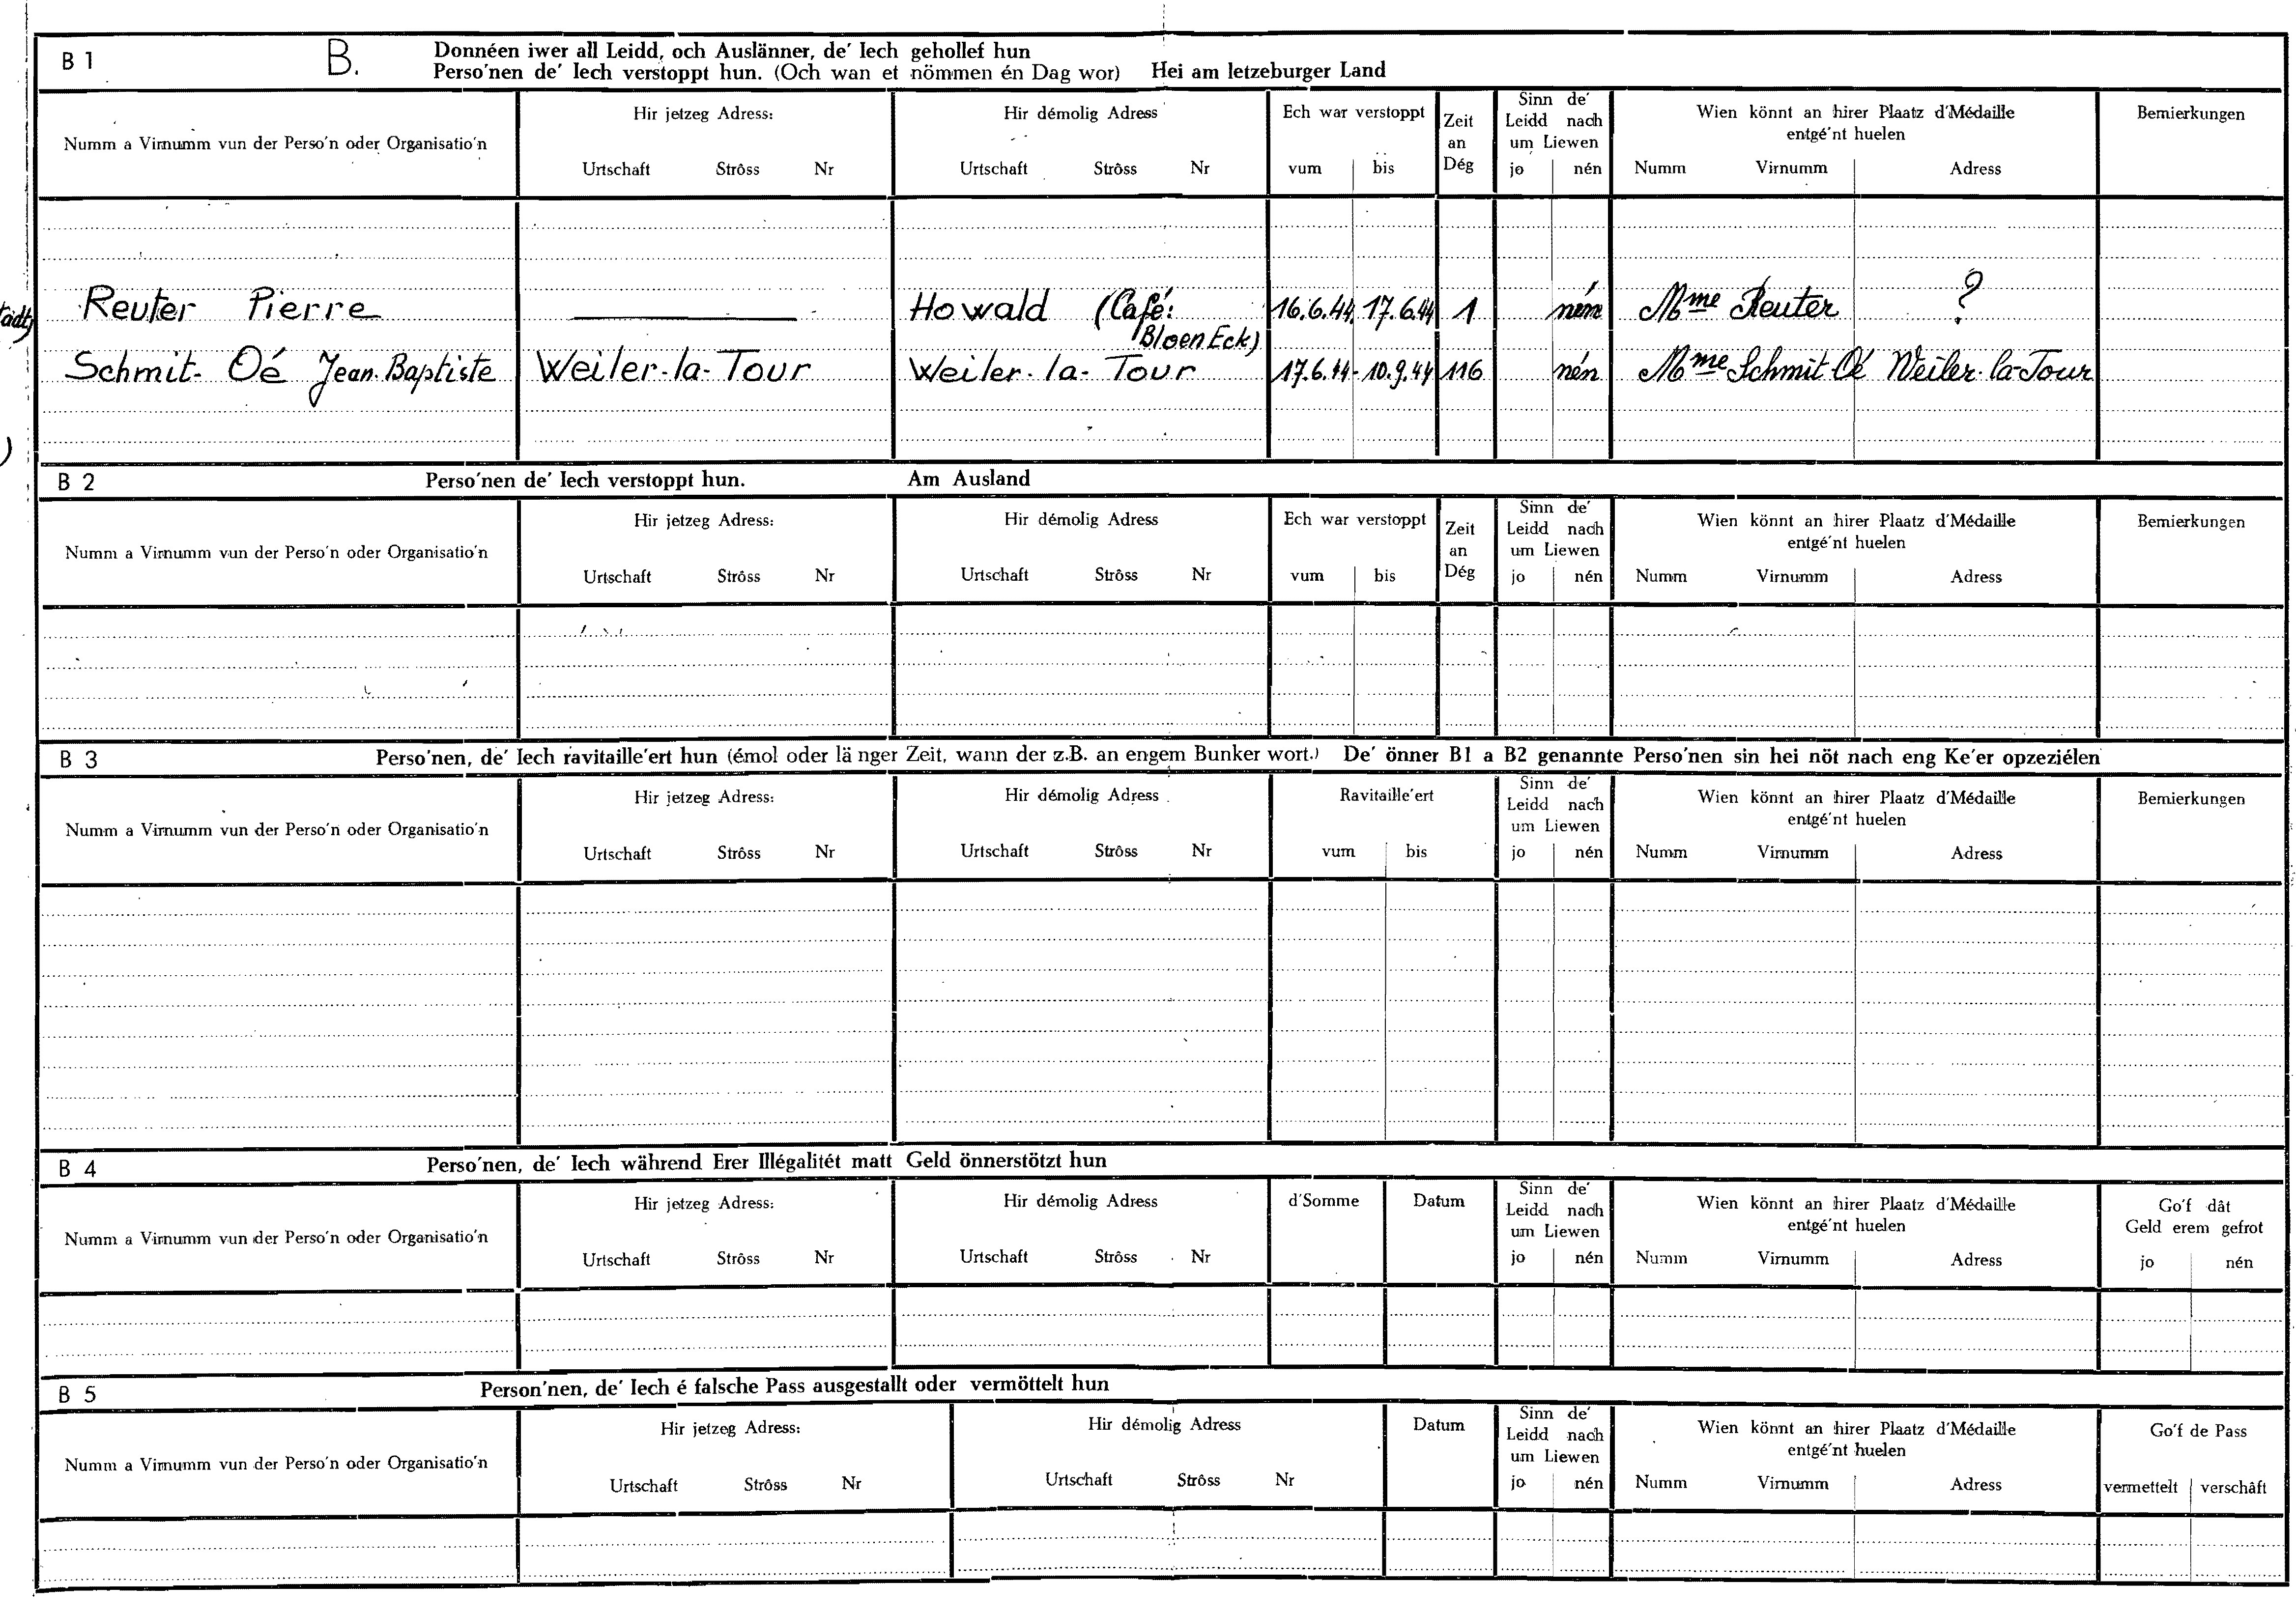 B 1 B. Donnéen iwer all Leidd, och Auslänner, de' Iech gehollef hun
Perso'nen de' Iech verstoppt hun. (Och wan et nömmen én Dag wor) Hei am letzeburger Land
Numm a Virnumm vun der Perso'n oder Organisatio'n
Hir jetzeg Adress:
Urtschaft Strôss Nr
Hir démolig Adress
Urtschaft Strôss Nr
Ech war verstoppt
vum bis
Zeit
an
Dég
Sinn de'
Leidd nach
um Liewen
jo nén
Wien könnt an hirer Plaatz d'Médaille
entgé'nt huelen
Numm Virnumm Adress
Bemierkungen
Reuter Pierre Howald (Café: 16.6.44. 17.6.44 1 nén Mme Reuter ?
Bloen Eck)
Schmit-Oé Jean-Baptiste Weiler-la-Tour Weiler-la-Tour 17.6.44-10.9.44 116 nén Mme Schmit-Oé Weiler-la-Tour
B 2 Perso'nen de' Iech verstoppt hun. Am Ausland
Numm a Virnumm vun der Perso'n oder Organisatio'n
Hir jetzeg Adress:
Urtschaft Strôss Nr
Hir démolig Adress
Urtschaft Strôss Nr
Ech war verstoppt
vum bis
Zeit
an
Dég
Sinn de'
Leidd nach
um Liewen
jo nén
Wien könnt an hirer Plaatz d'Médaille
entgé'nt huelen
Numm Virnumm Adress
Bemierkungen
B 3 Perso'nen, de' Iech ravitaille'ert hun (émol oder länger Zeit, wann der z.B. an engem Bunker wort.) De' önner B1 a B2 genannte Perso'nen sin hei nöt nach eng Ke'er opzeziélen
Numm a Virnumm vun der Perso'n oder Organisatio'n
Hir jetzeg Adress:
Urtschaft Strôss Nr
Hir démolig Adress
Urtschaft Strôss Nr
Ravitaille'ert
vum bis
Sinn de'
Leidd nach
um Liewen
jo nén
Wien könnt an hirer Plaatz d'Médaille
entgé'nt huelen
Numm Virnumm Adress
Bemierkungen
B 4 Perso'nen, de' Iech während Erer Illégalitét matt Geld önnerstötzt hun
Numm a Virnumm vun der Perso'n oder Organisatio'n
Hir jetzeg Adress:
Urtschaft Strôss Nr
Hir démolig Adress
Urtschaft Strôss Nr
d'Somme
Datum
Sinn de'
Leidd nach
um Liewen
jo nén
Wien könnt an hirer Plaatz d'Médaille
entgé'nt huelen
Numm Virnumm Adress
Go'f dât
Geld erem gefrot
jo nén
B 5 Person'nen, de' Iech é falsche Pass ausgestallt oder vermöttelt hun
Numm a Virnumm vun der Perso'n oder Organisatio'n
Hir jetzeg Adress:
Urtschaft Strôss Nr
Hir démolig Adress
Urtschaft Strôss Nr
Datum
Sinn de'
Leidd nach
um Liewen
jo nén
Wien könnt an hirer Plaatz d'Médaille
entgé'nt huelen
Numm Virnumm Adress
Go'f de Pass
vermettelt verschâft